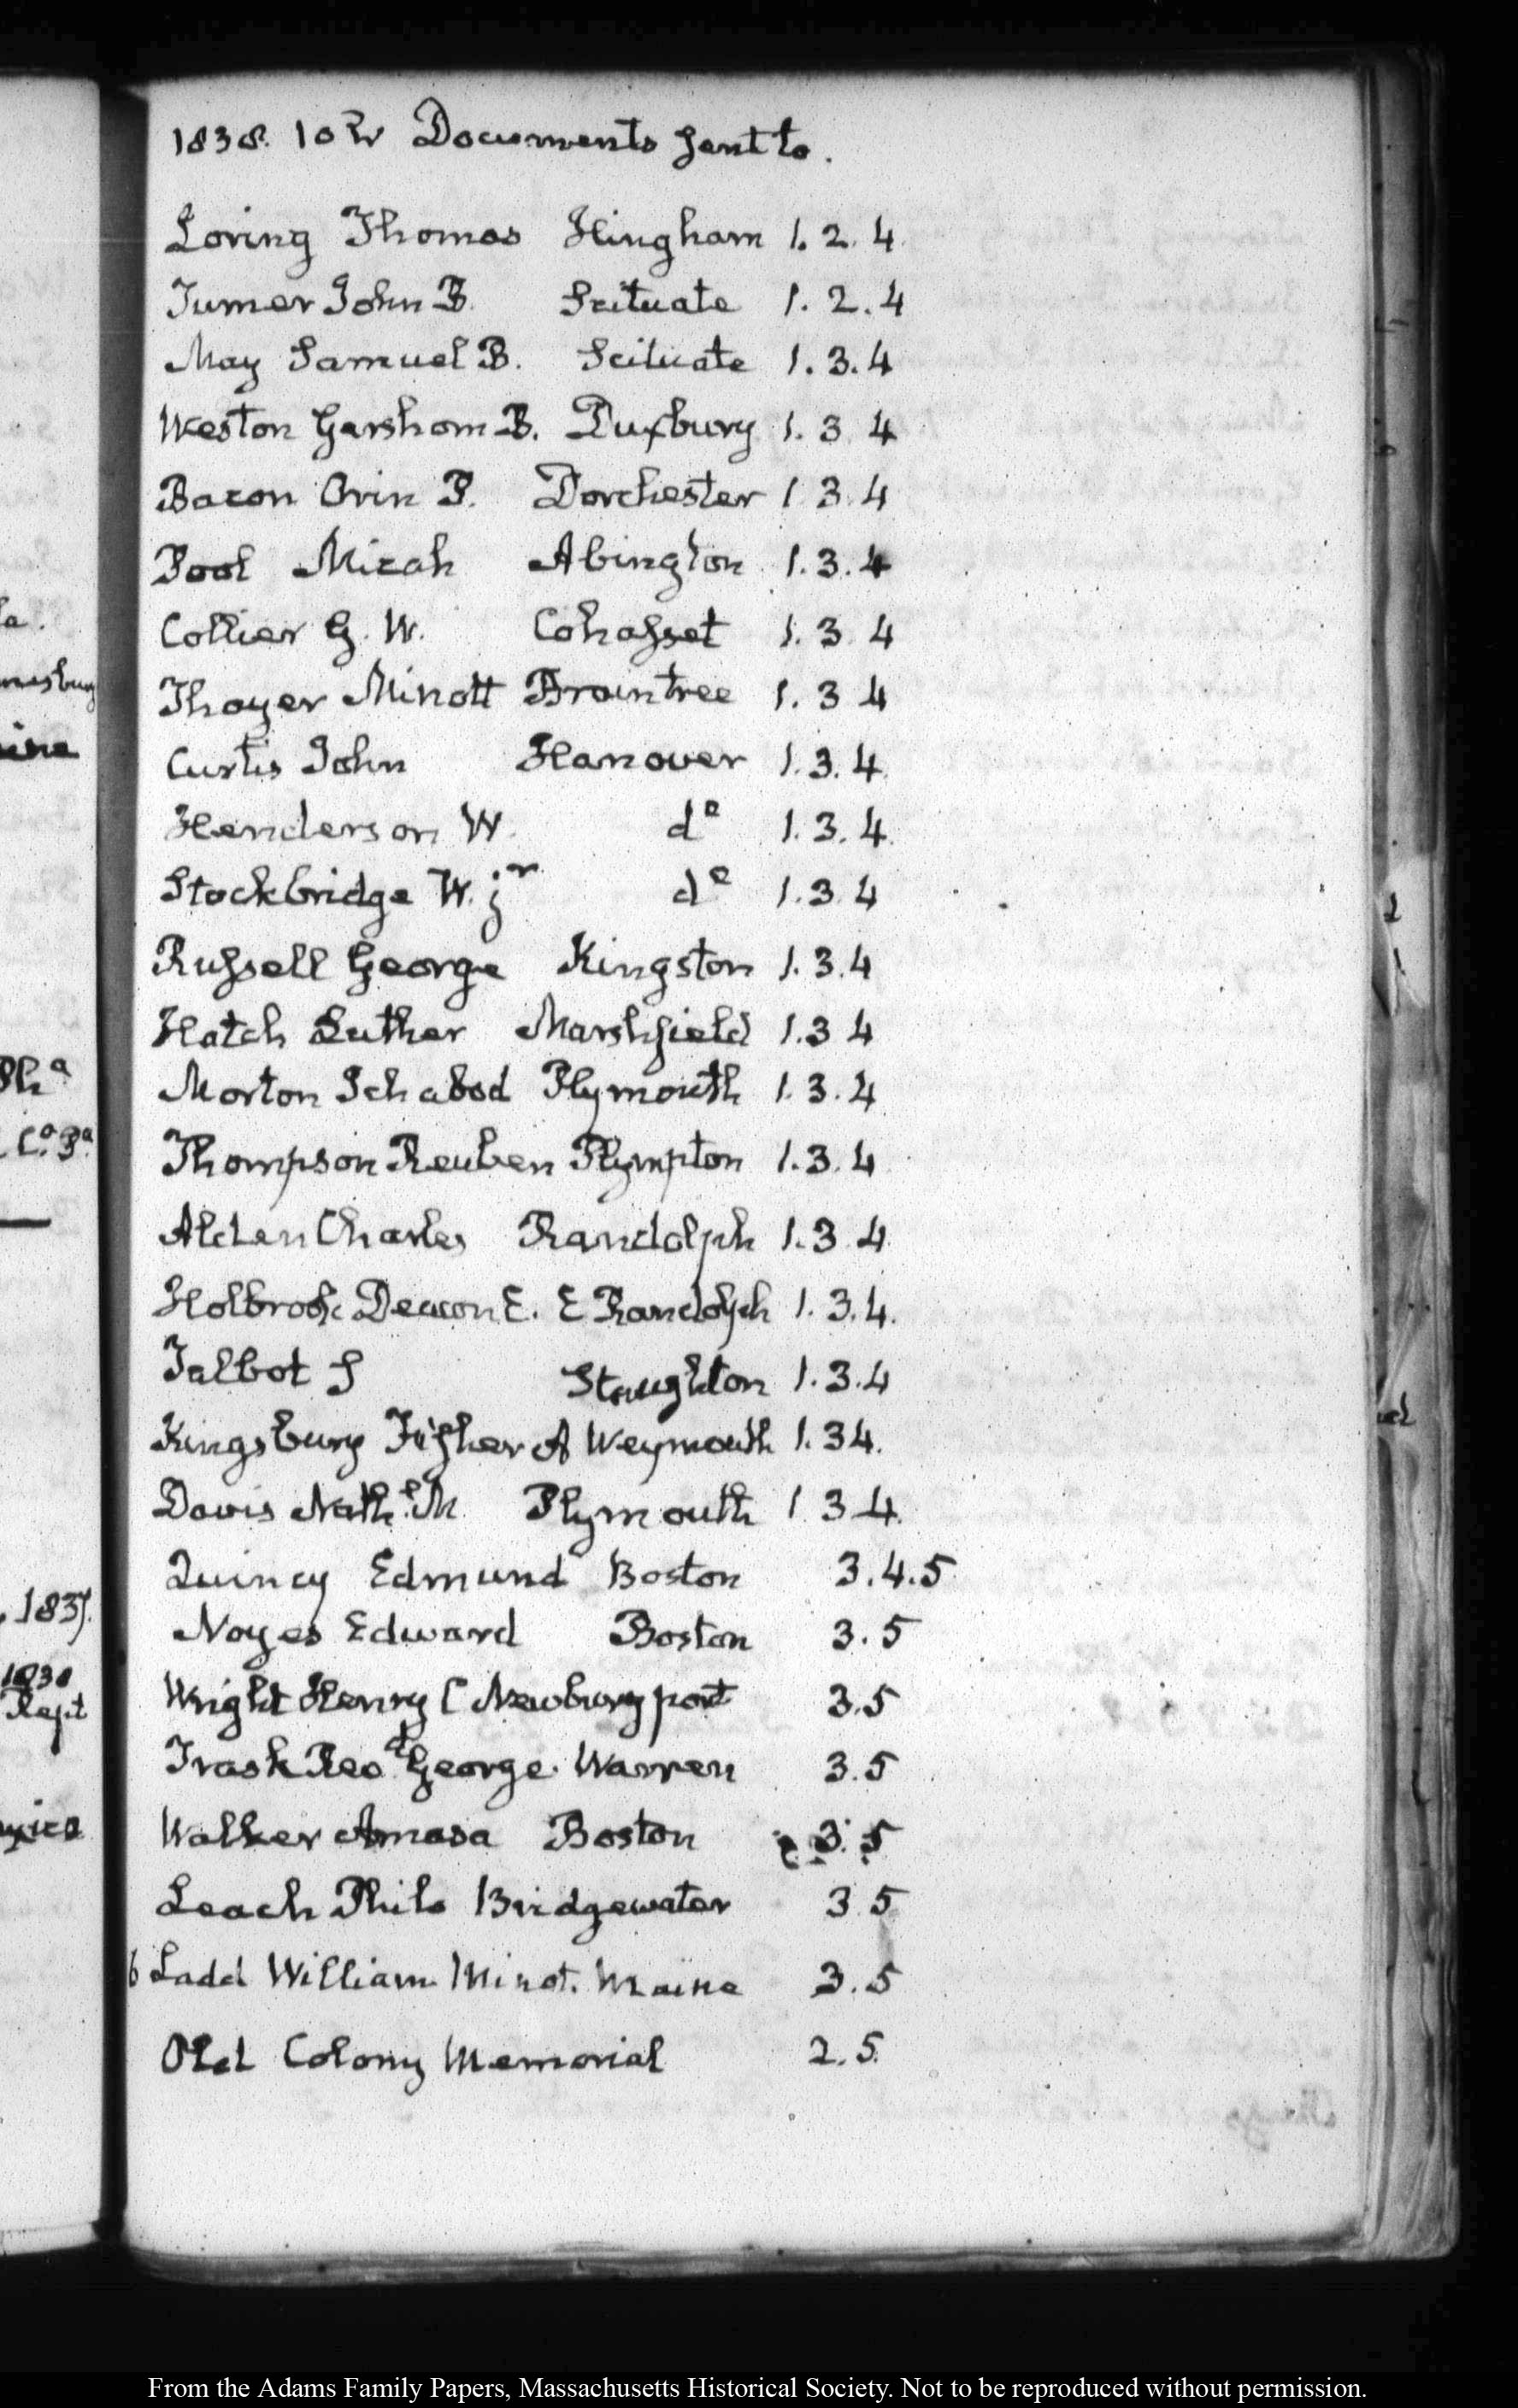 1838. 10 Documents sent to.
Loring Thomas Hingham 1. 2. 4.
Turner John B. Scituate 1. 2. 4
May Samuel B. Scituate 1. 3. 4
Weston Gershom B. Duxbury 1. 3 4
Bacon Orin P. Dorchester 1 3. 4
Pool Micah Abington 1. 3. 4
Collier G. W. Cohasset 1. 3. 4
Thayer Minott Braintree 1. 3 4
Curtis John Hanover 1. 3. 4.
Henderson W. do 1. 3. 4.
Stockbridge W. jr do 1. 3. 4
Russell George Kingston 1. 3. 4
Hatch Luther Marshfield 1. 3 4
Morton Ichabod Plymouth 1. 3. 4
Thompson Reuben Plympton 1. 3. 4
Alden Charles Randolph 1. 3 4
Holbrook Deacon E. E Randolph 1. 3. 4.
Talbot S Stoughton 1. 3. 4
Kingsbury Fisher A Weymouth 1. 3 4.
Davis Nathl. M. Plymouth 1. 3 4.
Quincy Edmund Boston 3. 4. 5
Noyes Edward Boston 3. 5
Wright Henry C Newburyport 3. 5
Trask Revd George. Warren 3. 5
Walker Amasa Boston 3. 5
Leach Philo Bridgewater 3 5
6 Ladd William Minot. Maine 3. 5
Old Colony Memorial 2. 5.
From the Adams Family Papers, Massachusetts Historical Society. Not to be reproduced without permission.